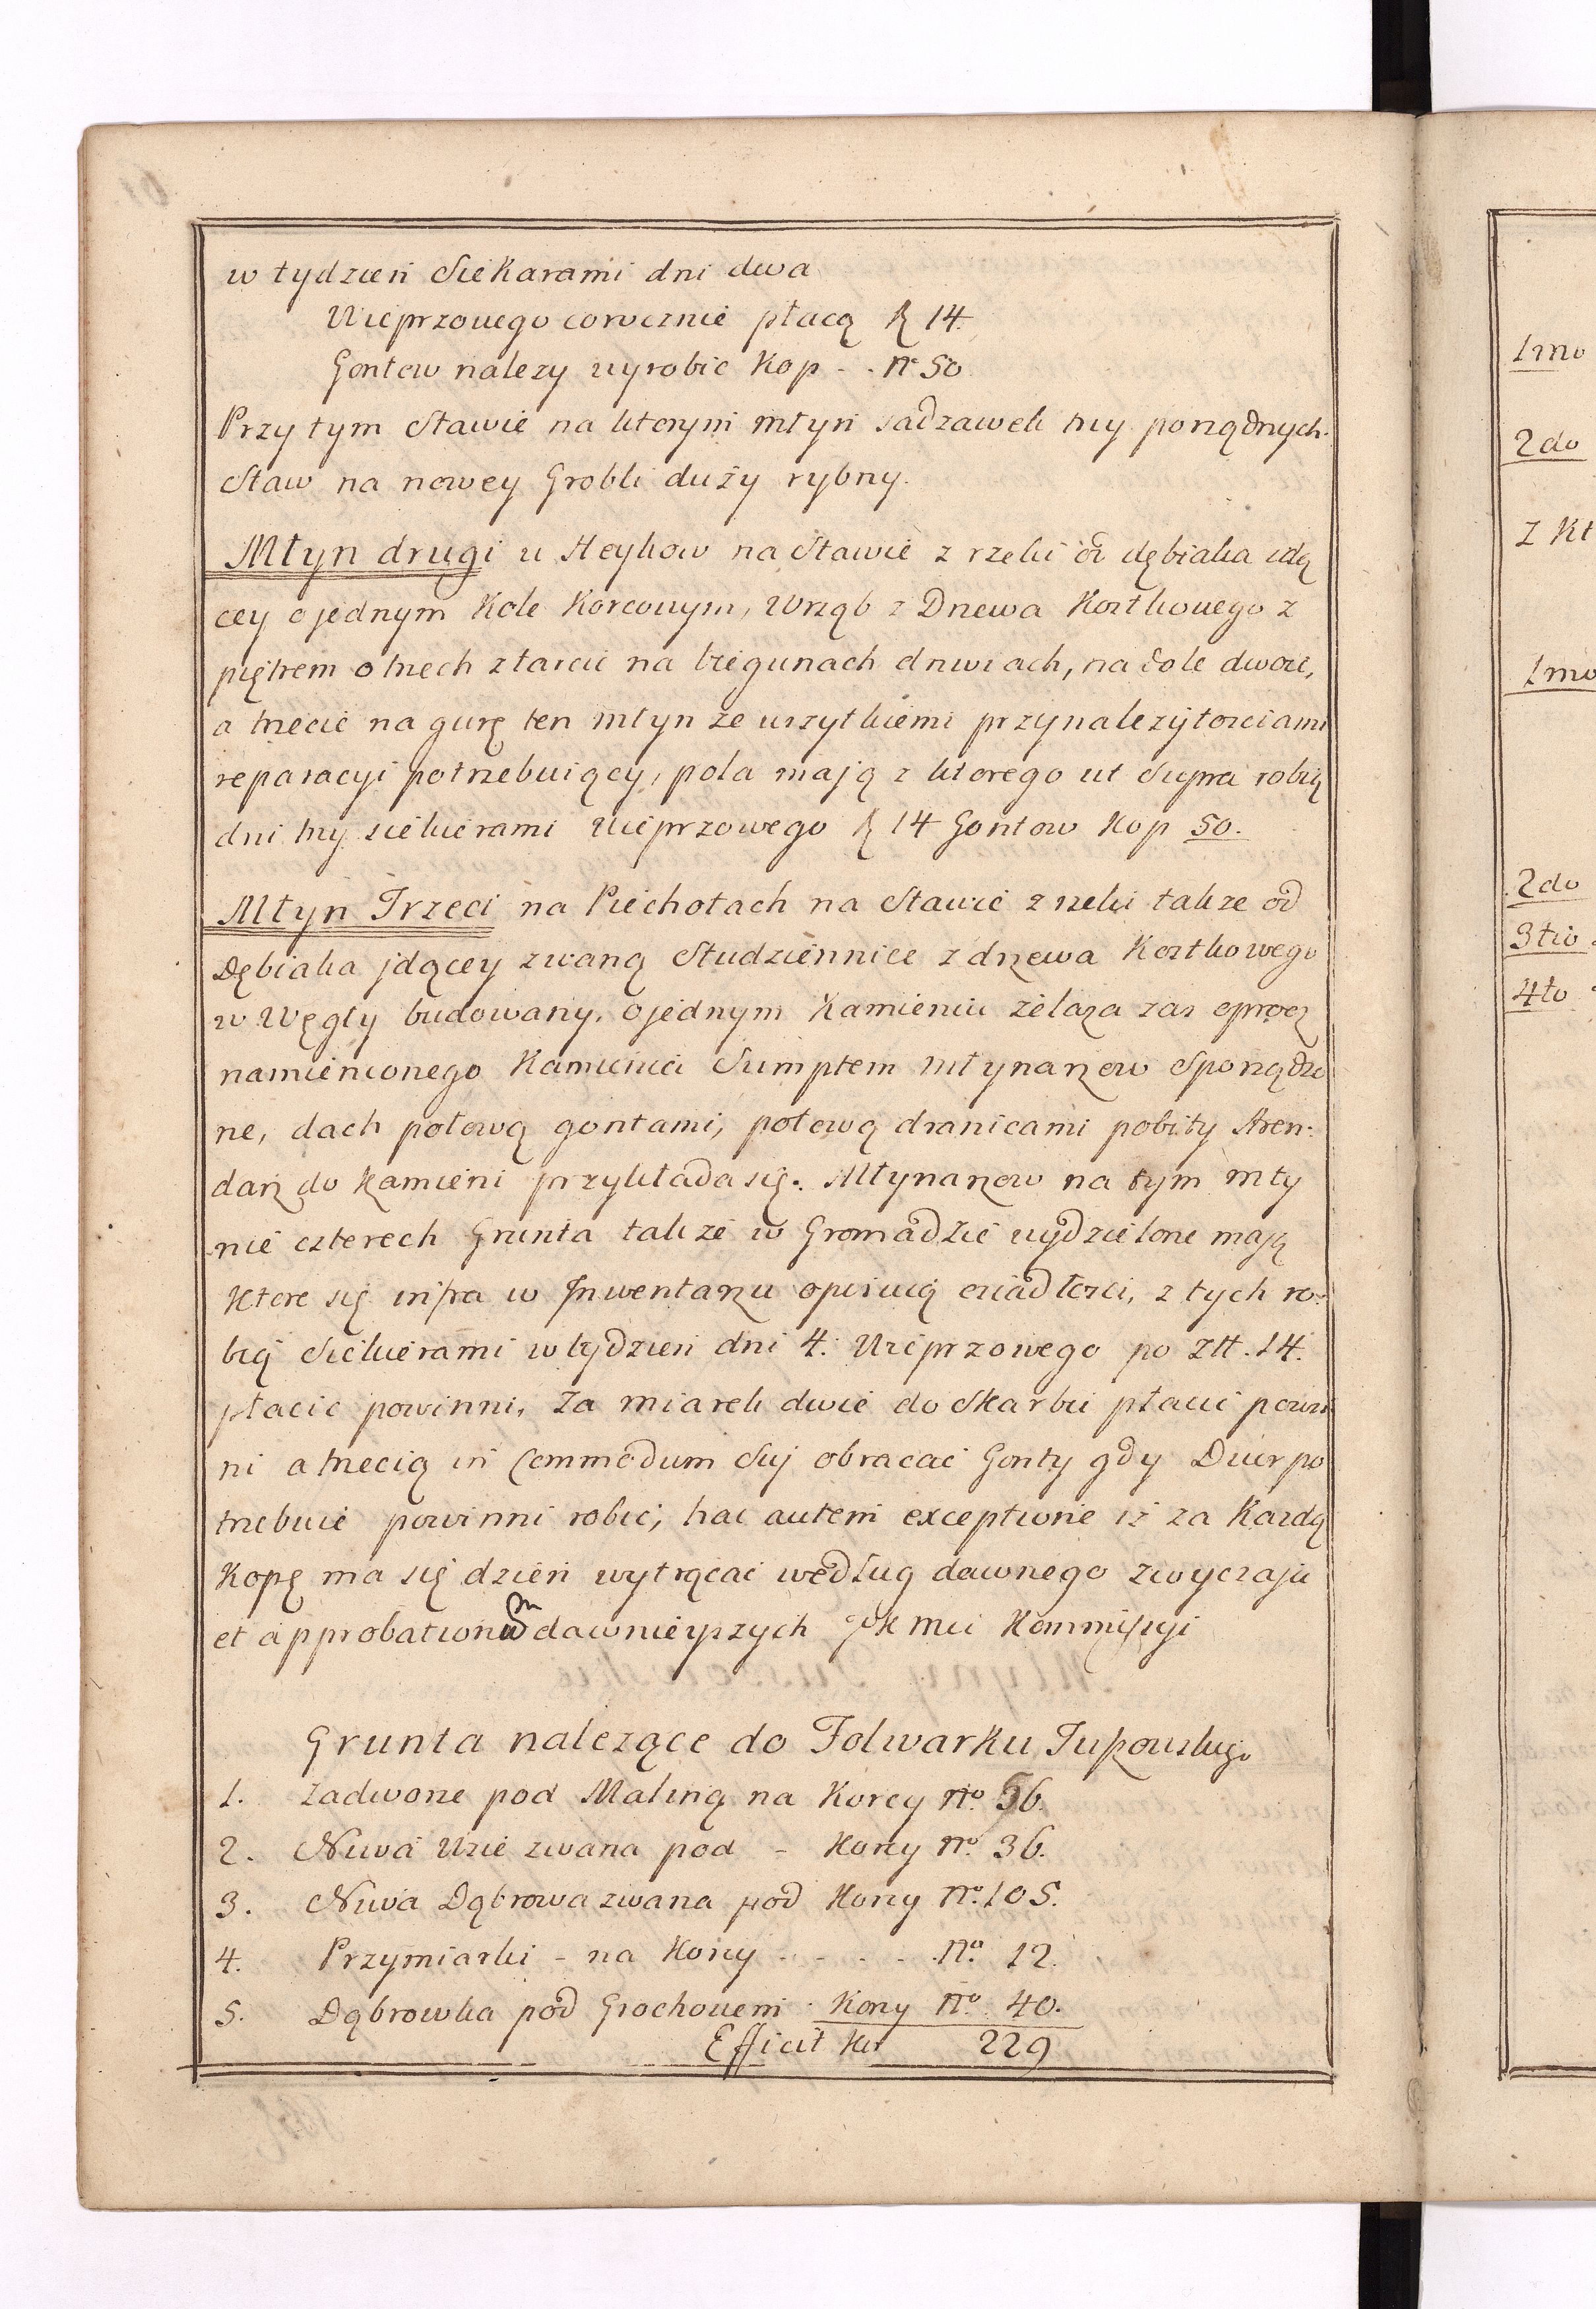 w tydzień Siekarami dni dwa
Wieprzowego corocznie płacą zł 14.
Gontow nalezy wyrobic Kop - . No 50
Przy tym Stawie na ktorym młyn sadzawek trzy porządnych.
Staw na nowey Grobli duży rybny.
Młyn drugi u Heykow na Stawie z rzeki od dębiaka idą
cey o jednym Kole Korcowym, Wrząb z Drzewa Kostkowego z
piętrem o trzech ztarcic na biegunach drzwiach, na dole dwoie,
a trzecie na gurę ten młyn ze wszytkiemi przynalezytosciami
reparacyi potrzebuiący, pola mają z ktorego ut Supra robią
dni trzy siekierami Wieprzowego zł 14 Gontow Kop 50.
Młyn Trzeci na Piechotach na Stawie z rzeki takze od
Dębiaka jdącey zwaną Studziennice z drzewa Kostkowego
w Węgły budowany, o jednym Kamieniu żelaza zas oprocz
namienionego Kamienia Sumptem Młynarzow Sporządzo
ne, dach połową gontami, połową dranicami pobity Aren:
darz do Kamieni przykłada się. Młynarzow na tym mły
nie czterech Grunta takze w Gromadzie wydzielone mają
Ktore się infra w Jnwentarzu opisuią osiadłosci, z tych ro:
bią Siekierami w tydzien dni 4. Wieprzowego po Złł. 14.
płacic powinni, Za miarek dwie do Skarbu płacic powin
ni a trzecią in Commodum Suj obracac Gonty gdy Dwor po
trzebuie powinni robic, hac autem exceptione iż za Kazdą
Kopę ma się dzień wytrącac według dawnego zwyczaju
et approbationum dawnieyszych JK Mci Kommissyi
Grunta nalezące do Folwarku Tuszowskiego
1. Zadworne pod Maliną na Korcy No. 36.
2. Niwa Uzie zwana pod - Korcy No. 36.
3. Niwa Dąbrowa zwana pod Korcy No. 105.
4. Przymiarki - na Korcy - - - - - No. 12.
5. Dąbrowka pod Grochowem - Korcy No. 40.
Efficit Kor 229
1mo
2do
Z Kt
1mo
2do
3tio
4to